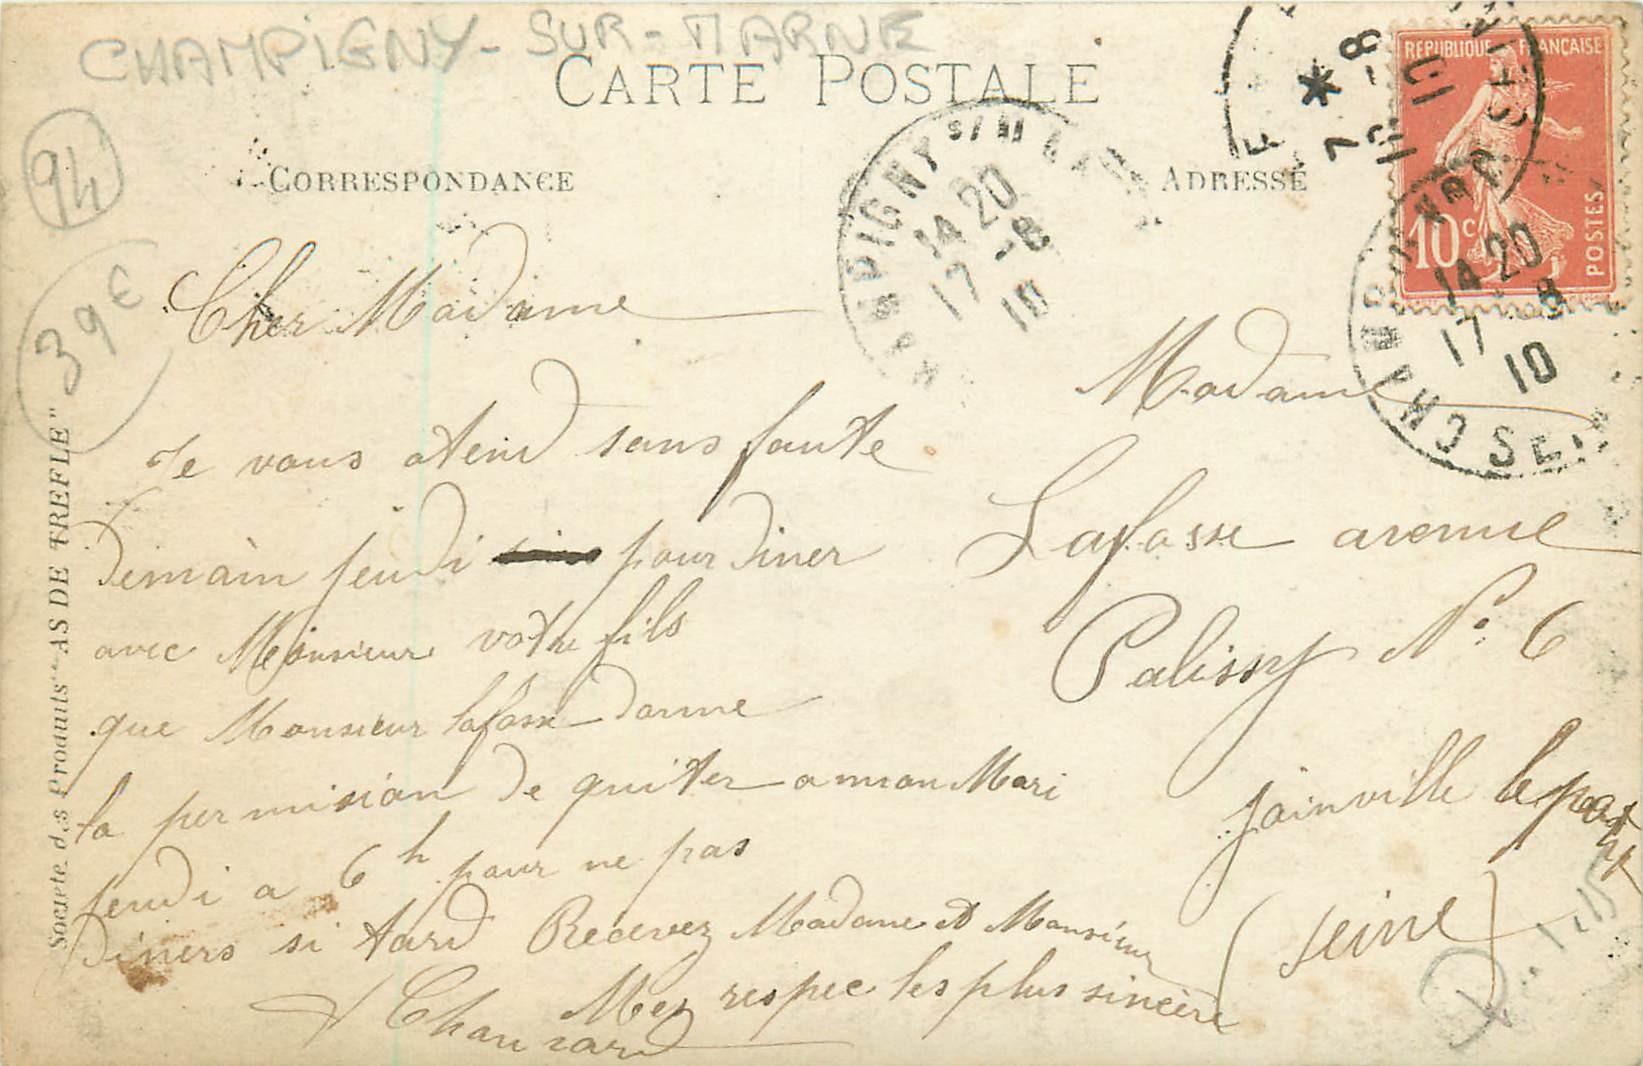 CHAMPIGNY-SUR-MARNE
CARTE POSTALE
CORRESPONDANCE
ADRESSE
94
39€
REPUBLIQUE FRANÇAISE
10c
POSTES
CHAMPIGNY S/M
14 20
17 - 8
10
14 20
17 - 8
10
SEINE
Societe des Produits "AS DE TREFLE"
Cher Madame
Je vous atend sans faute
Demain jeudi pour diner
avec Monsieur votre fils
que Monsieur Lafosse donne
la permision de quiter a mon Mari
jeudi a 6h pour ne pas
Diners si tard Recevez Madame et Monsieur
Mes respec les plus sincère
Madame
Lafosse avenue
Palissy No 6
joinville le pont
(seine)